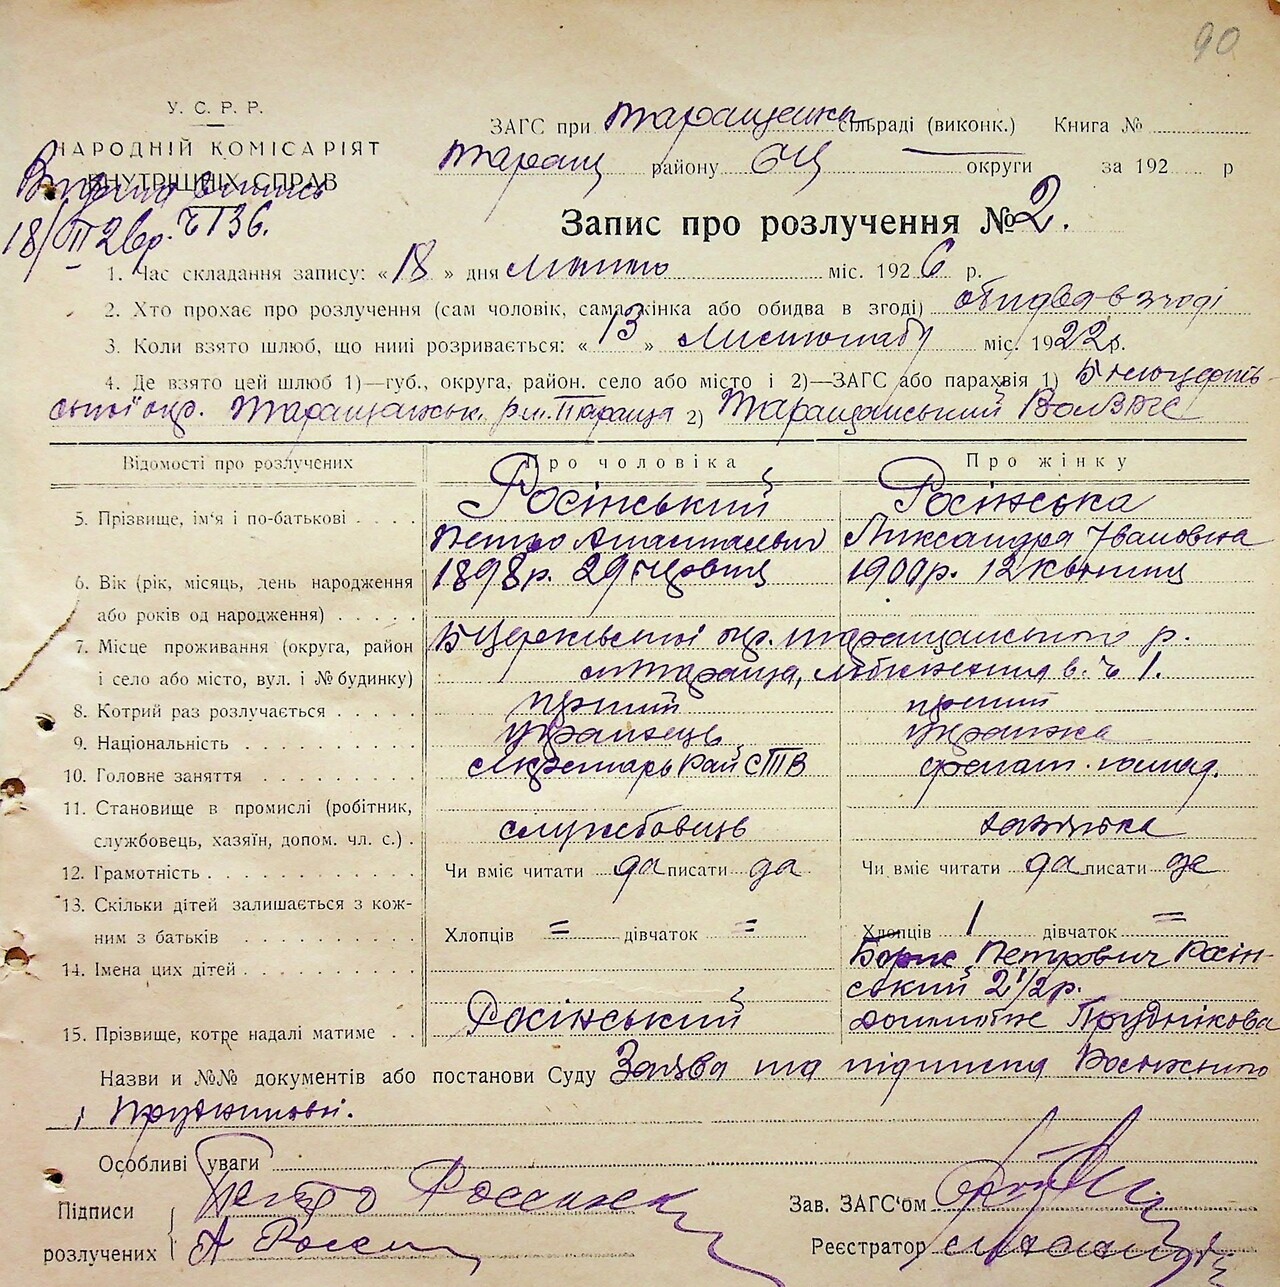 90
У. С. Р. Р.
НАРОДНІЙ КОМІСАРІЯТ
ВНУТРІШНІХ СПРАВ
18/III 26р. ч 136.
ЗАГС при Таращанськ сільраді (виконк.) Книга №
Таращ району БЦ округи за 192 р
Запис про розлучення № 2.
1. Час складання запису: « 18 » дня міс. 192 6 р.
2. Хто прохає про розлучення (сам чоловік, сама жінка або обидва в згоді) обидва в згоді
3. Коли взято шлюб, що нині розривається: « 13 » Листопаду міс. 19 22 р.
4. Де взято цей шлюб 1)—губ., округа, район. село або місто і 2)—ЗАГС або парахвія 1) Білоцерків-
ської окр. Таращанськ. р м. Тараща 2) Таращанський ВолЗАГС
Відомості про розлучених Про чоловіка Про жінку
5. Прізвище, ім'я і по-батькові Росінський Росінська
Петро Анастасьевич Александра Івановна
6. Вік (рік, місяць, день народження 1898 р. 29 червця 1900 р. 12 квітня
або років од народження)
7. Місце проживання (округа, район БЦерківської окр. Таращанського р.
і село або місто, вул. і № будинку) м Тараща, в. ч 1.
8. Котрий раз розлучається перший перший
9. Національність українець українка
10. Головне заняття секретарь Рай СТВ домат. господ.
11. Становище в промислі (робітник,
службовець, хазяїн, допом. чл. с.) службовець хазяйка
12. Грамотність Чи вміє читати да писати да Чи вміє читати да писати да
13. Скільки дітей залишається з кож-
ним з батьків Хлопців = дівчаток = Хлопців 1 дівчаток =
14. Імена цих дітей Борис Петрович Росін-
ський 2 1/2 р.
15. Прізвище, котре надалі матиме Росінський дошлюбне Прудникова
Назви и №№ документів або постанови Суду Заява та підписка Росінського
і Прудникової.
Особливі уваги
Підписи Петро Росински
розлучених А Росин
Зав. ЗАГС'ом
Реєстратор